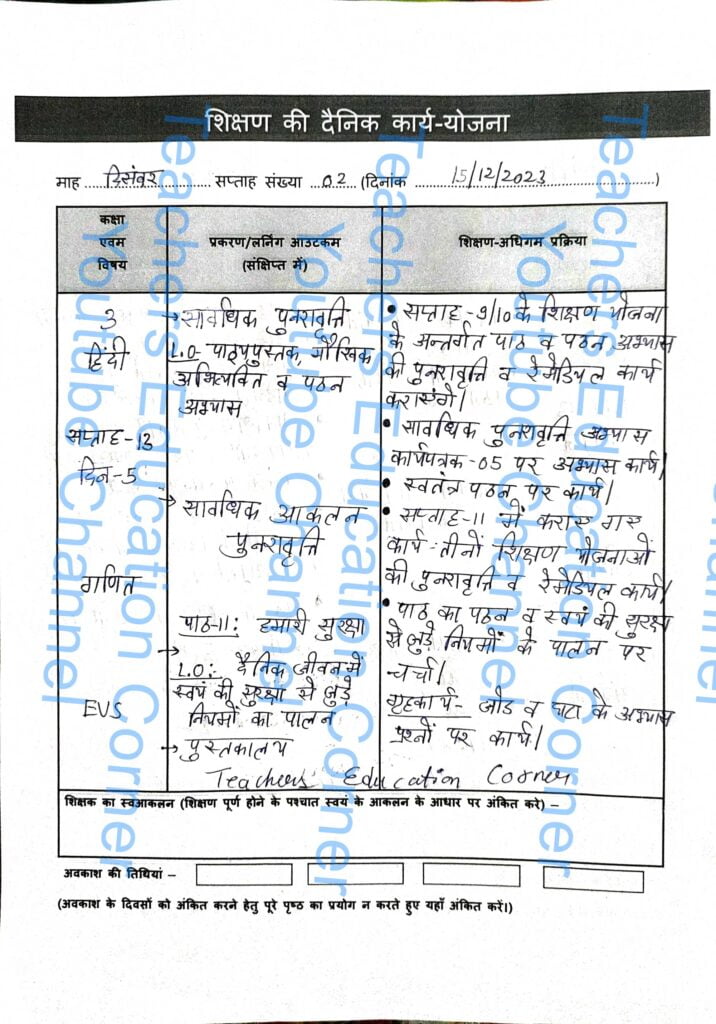 शिक्षण की दैनिक कार्य-योजना
माह ....दिसंबर.... सप्ताह संख्या ...02...(दिनांक ....15/12/2023....)
कक्षा
एवम
विषय
प्रकरण/लर्निग आउटकम
(संक्षिप्त में)
शिक्षण-अधिगम प्रक्रिया
3
हिंदी
सप्ताह-13
दिन-5
गणित
EVS
→सावधिक पुनरावृत्ति
L.O- पाठ्यपुस्तक, मौखिक
अभिव्यक्ति व पठन
अभ्यास
→ सावधिक आकलन
पुनरावृत्ति
पाठ-11: हमारी सुरक्षा
→
L.O: दैनिक जीवन में
स्वयं की सुरक्षा से जुड़े
नियमों का पालन
→ पुस्तकालय
• सप्ताह-9/10 के शिक्षण योजना
के अन्तर्गत पाठ व पठन अभ्यास
की पुनरावृत्ति व रेमेडियल कार्य
कराएंगे।
• सावधिक पुनरावृत्ति अभ्यास
कार्यपत्रक-05 पर अभ्यास कार्य।
• स्वतंत्र पठन पर कार्य।
• सप्ताह-11 में कराए गए
कार्य-तीनों शिक्षण योजनाओं
की पुनरावृत्ति व रेमेडियल कार्य।
• पाठ का पठन व स्वयं की सुरक्षा
से जुड़े नियमों के पालन पर
चर्चा।
गृहकार्य- जोड व घटा के अभ्यास
प्रश्नों पर कार्य।
Teachers Education Corner
शिक्षक का स्वआकलन (शिक्षण पूर्ण होने के पश्चात स्वयं के आकलन के आधार पर अंकित करे) –
अवकाश की तिथियां –
(अवकाश के दिवसों को अंकित करने हेतु पूरे पृष्ठ का प्रयोग न करते हुए यहाँ अंकित करें।)
Teachers Education Corner
Youtube Channel
Teachers Education Corner
Youtube Channel
Teachers Education Corner
Youtube Channel